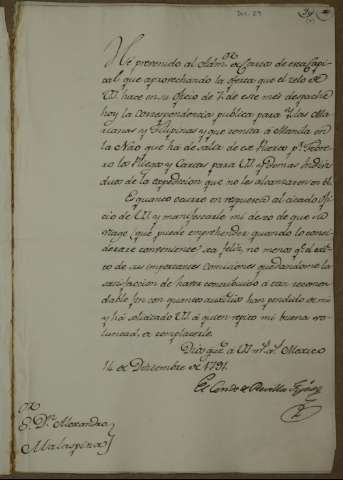 Doc. 29
He prevenido al Adm.or de Correos de esta Capi-
tal que aprovechando la oferta que el zelo de
VS hace en su oficio de 7 de este mes despache
hoy la correspondencia publica para Yslas Ma-
rianas y Filipinas y que remita a Manila en
la Nao que ha de salir de ese Puerto p.r Febre-
ro los Pliegos y Cartas para VS y demas Yndivi-
duos de la expedicion que no les alcanzaren en él.
Es quanto ocurre en respuesta al citado ofi-
cio de VS y manifestarle mi deseo de que su
viage que puede emprehender quando lo consi-
derare conveniente sea feliz, no menos q.e el exito
de sus importantes comisiones quedandome la
satisfaccion de haver contribuido a tan recomen-
dable fin con quantos auxilios han pendido de mi
y ha solicitado VS a quien repito mi buena vo-
luntad de complacerle.
Dios gue. a VS m.s a.s Mexico
14 de Diciembre de 1791.
El Conde de Revilla Gigedo
S.or D.n Alexandro
Malaspina